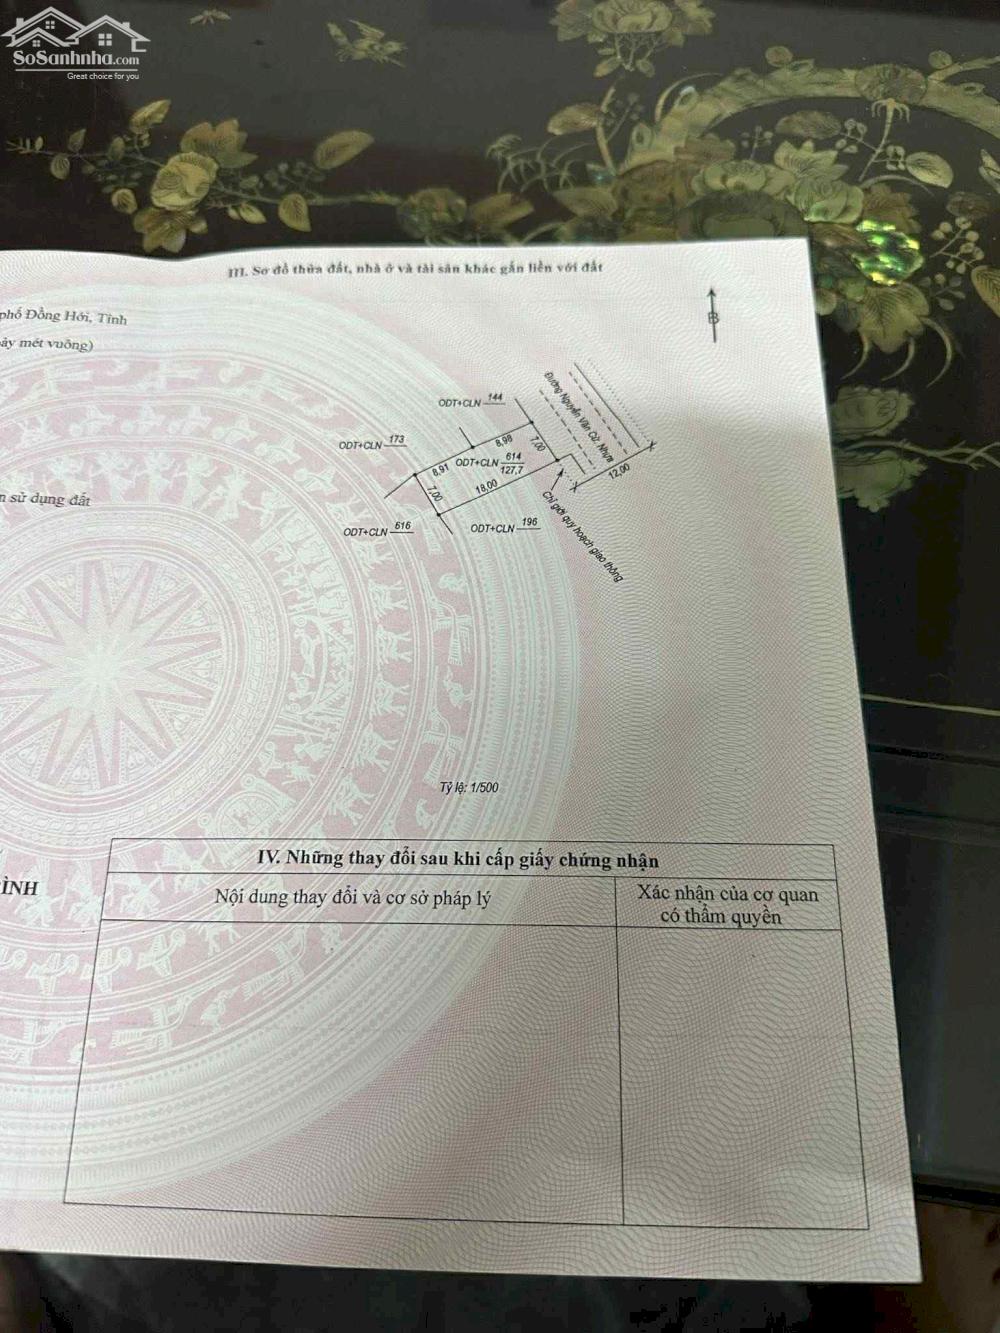 SoSanhnha.com
Great choice for you
III. Sơ đồ thửa đất, nhà ở và tài sản khác gắn liền với đất
phố Đồng Hới, Tỉnh
ảy mét vuông)
B
Đường Nguyễn Văn Cừ, Nhựa
ODT+CLN 144
ODT+CLN 173
8,98
7,00
8,91
ODT+CLN 614
127,7
12,00
7,00
18,00
n sử dụng đất
ODT+CLN 616
ODT+CLN 196
Chỉ giới quy hoạch giao thông
Tỷ lệ: 1/500
IV. Những thay đổi sau khi cấp giấy chứng nhận
ÌNH
Nội dung thay đổi và cơ sở pháp lý
Xác nhận của cơ quan
có thẩm quyền